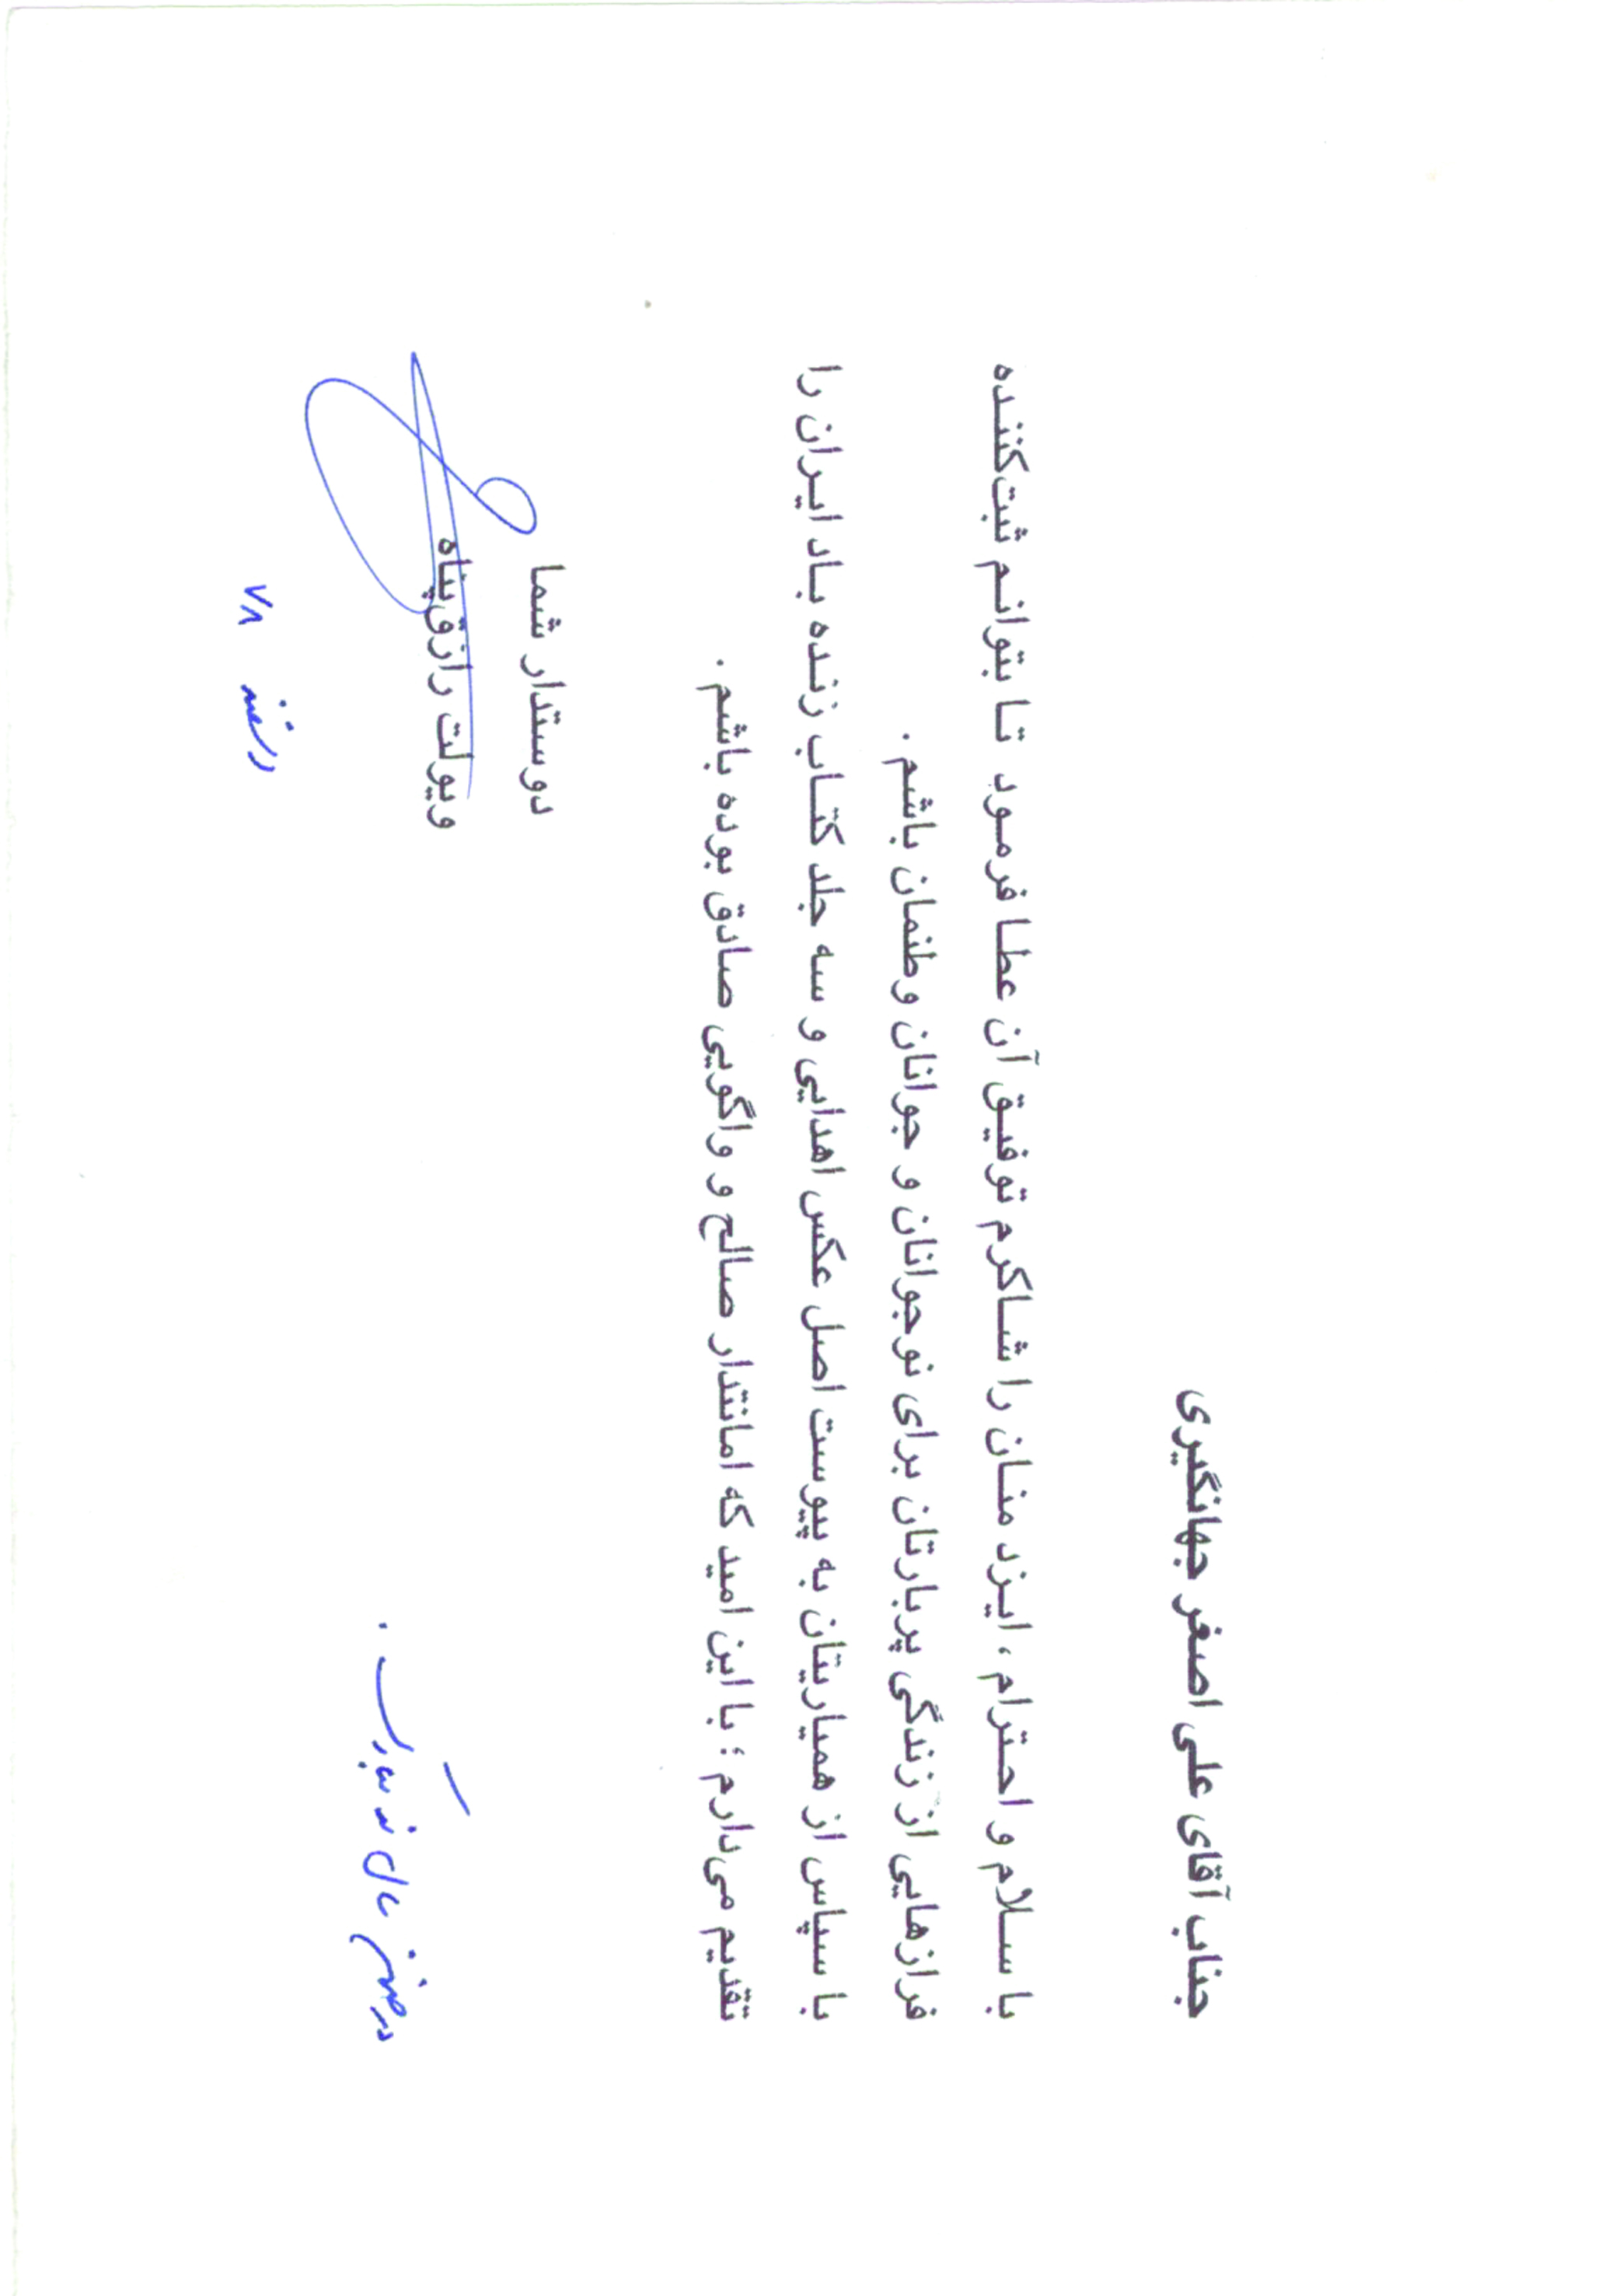 جناب آقای علی اصغر جهانگیری
با سلام و احترام، ایزد منان را شاکرم توفیق آن عطا فرمود تا بتوانم ثبت‌کننده
فرازهایی از زندگی پربارتان برای نوجوانان و جوانان وطنمان باشم.
با سپاس از همیاریتان به پیوست اصل عکس اهدایی و سه جلد کتاب زنده باد ایران را
تقدیم می‌دارم؛ با این امید که امانتدار صالح و واگویی صادق بوده باشم.
دوستدار شما
ویولت رازق‌پناه
در ضمن سال نو مبارک.
اسفند ۷۸